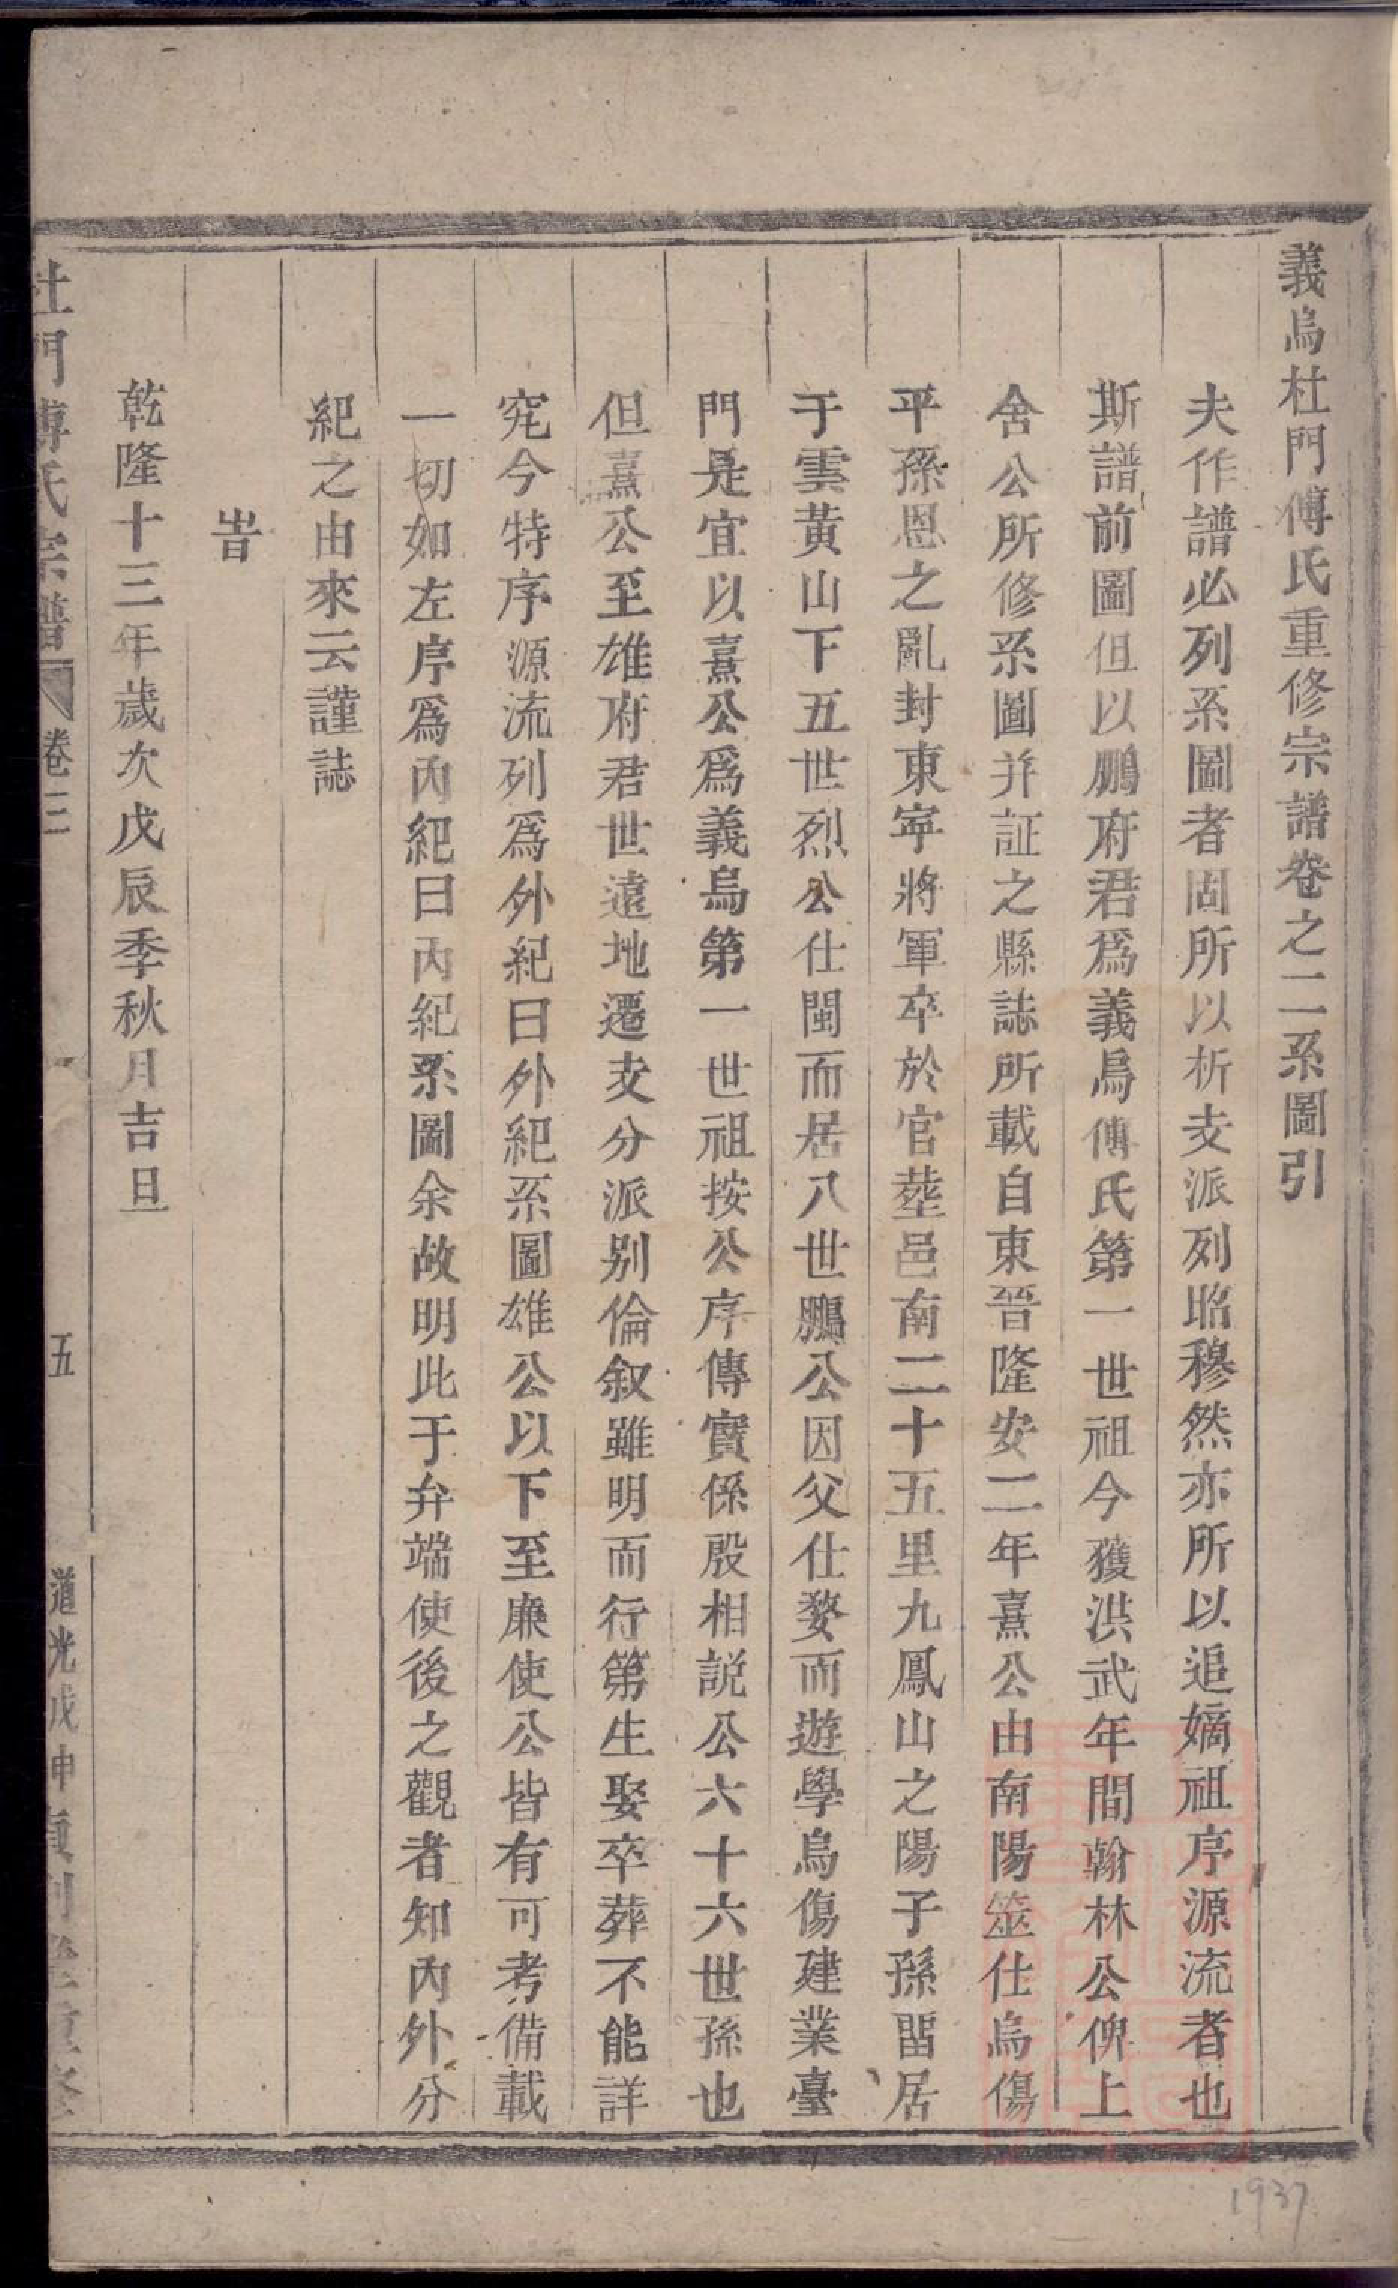 義烏杜門傅氏重修宗譜卷之二系圖引
夫作譜必列系圖者固所以析支派列昭穆然亦所以追嫡祖序源流者也
斯譜前圖但以鵬府君爲義烏傅氏第一世祖今獲洪武年間翰林公俾上
舍公所修系圖并証之縣誌所載自東晉隆安二年熹公由南陽筮仕烏傷
平孫恩之亂封東寧將軍卒於官塟邑南二十五里九鳳山之陽子孫畱居
于雲黃山下五世烈公仕閩而居八世鵬公因父仕婺而遊學烏傷建業臺
門是宜以熹公爲義烏第一世祖按公序傳實係殷相説公六十六世孫也
但熹公至雄府君世遠地遷支分派别倫叙雖明而行第生娶卒葬不能詳
究今特序源流列爲外紀曰外紀系圖雄公以下至廉使公皆有可考備載
一切如左序爲內紀曰內紀系圖余故明此于弁端使後之觀者知內外分
紀之由來云謹誌
旹
乾隆十三年歲次戊辰季秋月吉旦
杜門傅氏宗譜 卷三 五 道光戊申
1937